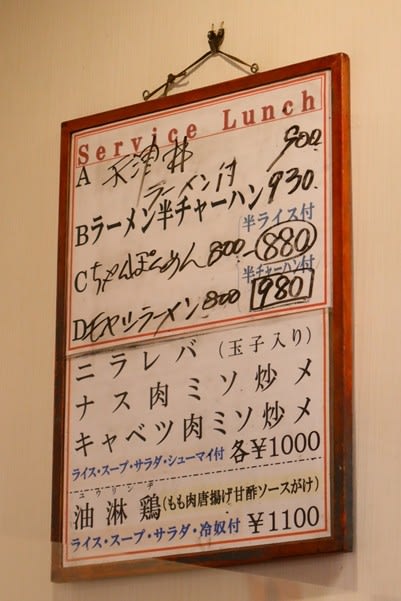 Service Lunch
A 天津丼 900.
ラーメン付
Bラーメン半チャーハン 930.
半ライス付
Cちゃんぽんめん 800 880
半チャーハン付
Dモヤシラーメン 800 980
ニラレバ(玉子入り)
ナス肉ミソ炒メ
キャベツ肉ミソ炒メ
ライス・スープ・サラダ・シューマイ付 各¥1000
ユウリンチ
油淋鶏(もも肉唐揚げ甘酢ソースがけ)
ライス・スープ・サラダ・冷奴付 ¥1100